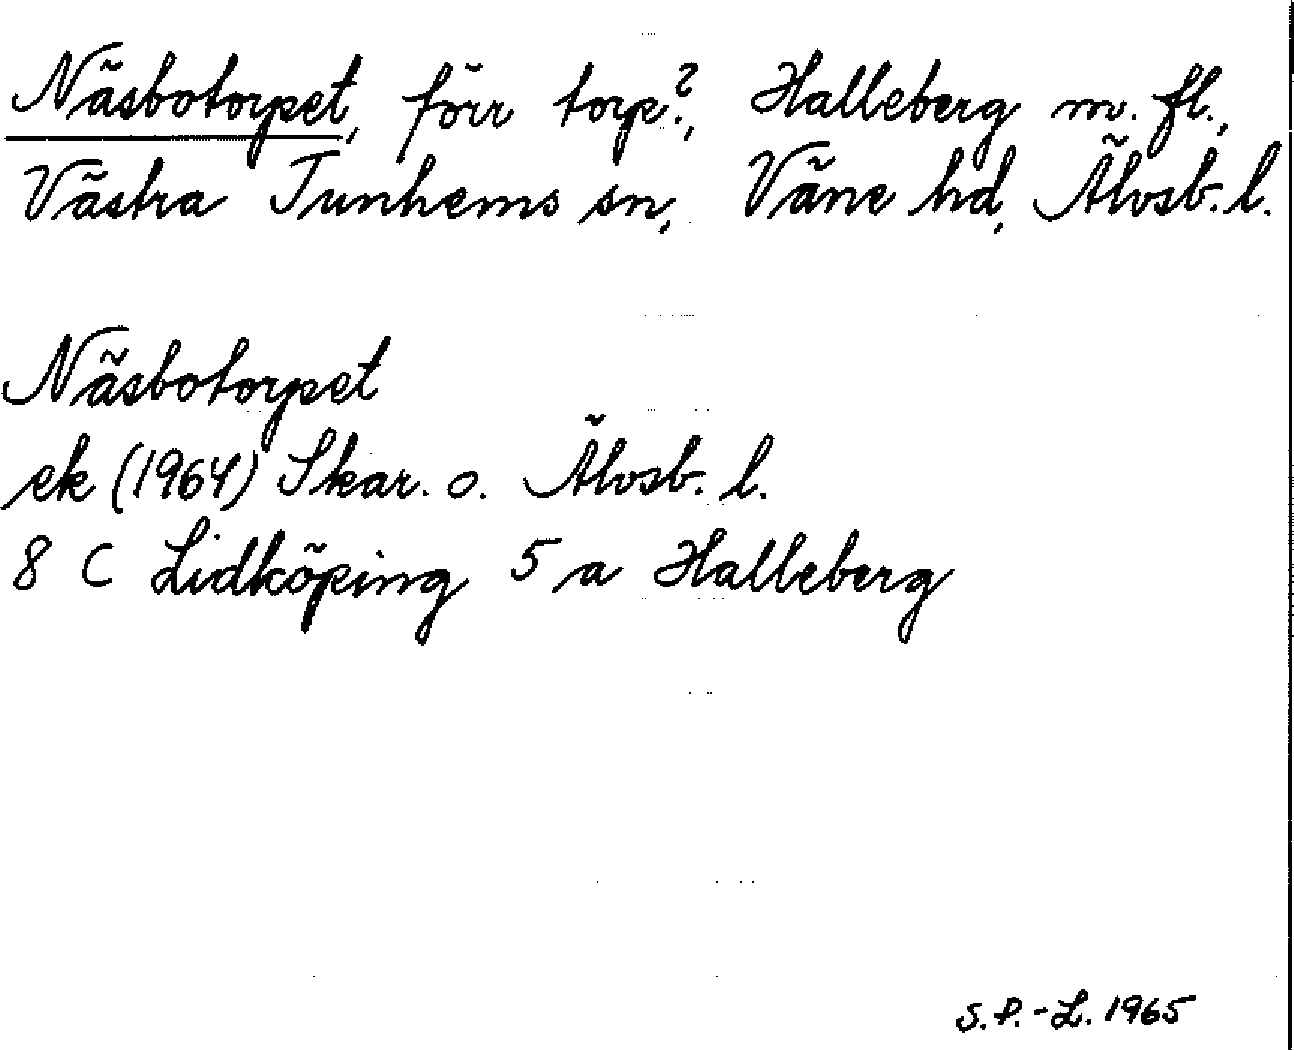 Näsbotorpet, förr torp?, Halleberg m. fl.,
Västra Tunhems sn, Väne hd, Älvsb. l.
Näsbotorpet
ek (1964) Skar. o. Älvsb. l.
8 C Lidköping 5 a Halleberg
S.P.-L. 1965